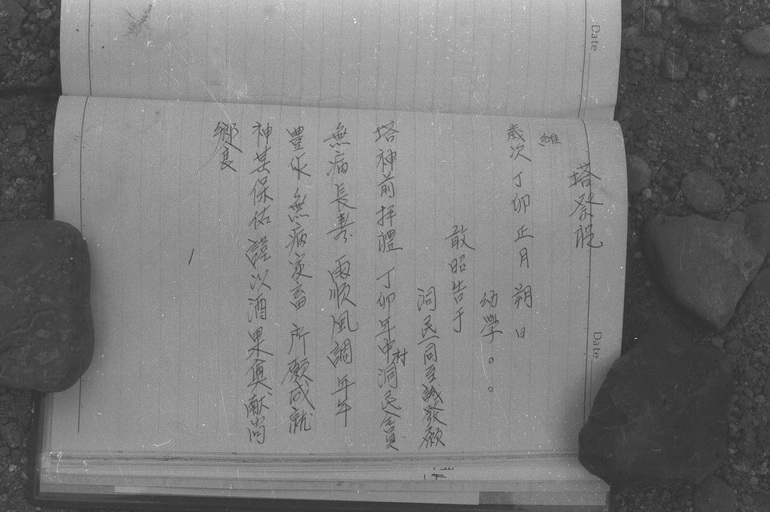 塔祭祝
維
歲次丁卯正月朔日
幼學○○
敢昭告于
洞民一同至誠發願
塔神前拝禮丁卯年中村洞民會員
無病長壽雨順風調年年
豊作無病家畜所願成就
神其保佑謹以酒果奠獻尚
饗
Date
Date